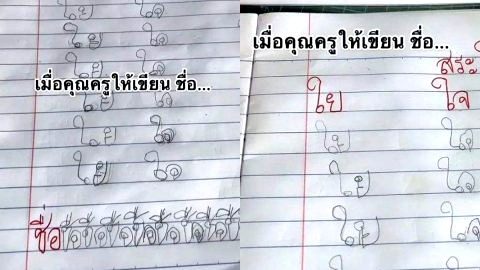 ใย ใจ
ใย ใจ
ใย ใจ
เมื่อคุณครูให้เขียน ชื่อ...
ใย ใจ
ใย ใจ
ใย ใจ
ชื่อ
เมื่อคุณครูให้เขียน ชื่อ...
สระ
ใย ใจ
ใย ใจ
ใย ใจ
ใย ใจ